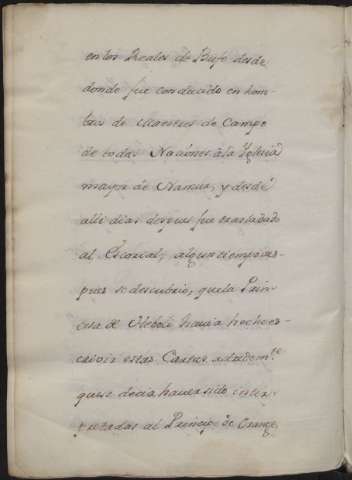 en los Reales de Bufe desde
donde fue conducido en hom-
bros de Maestres de Campo
de todas Naciones à la Yglesia
mayor de Namur, y desde
alli dias despues fue trasladado
al Escorial; algun tiempo des-
pues se descubrio, que la Prin-
cesa de Eboli havia hecho es-
crivir estas Cartas
que se decia haver sido inter-
pretadas al Principe de Orange